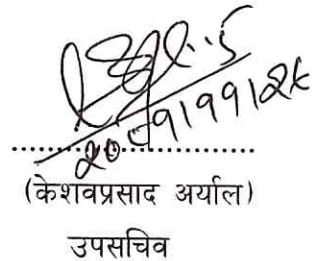 ....................................
(केशवप्रसाद अर्याल)
उपसचिव